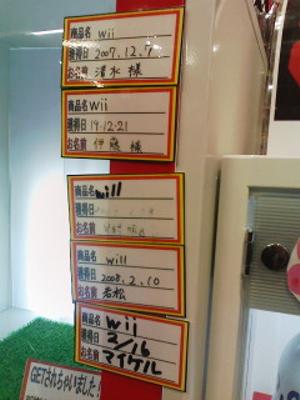 商品名 wii
獲得日 2007.12.7
お名前 清水 様
商品名 wii
獲得日 19.12.21
お名前 伊藤 様
商品名 will
獲得日
お名前
商品名 will
獲得日 2008.2.10
お名前 若松
商品名 wii
獲得日 2/16
お名前 マイケル
GETされちゃいました!